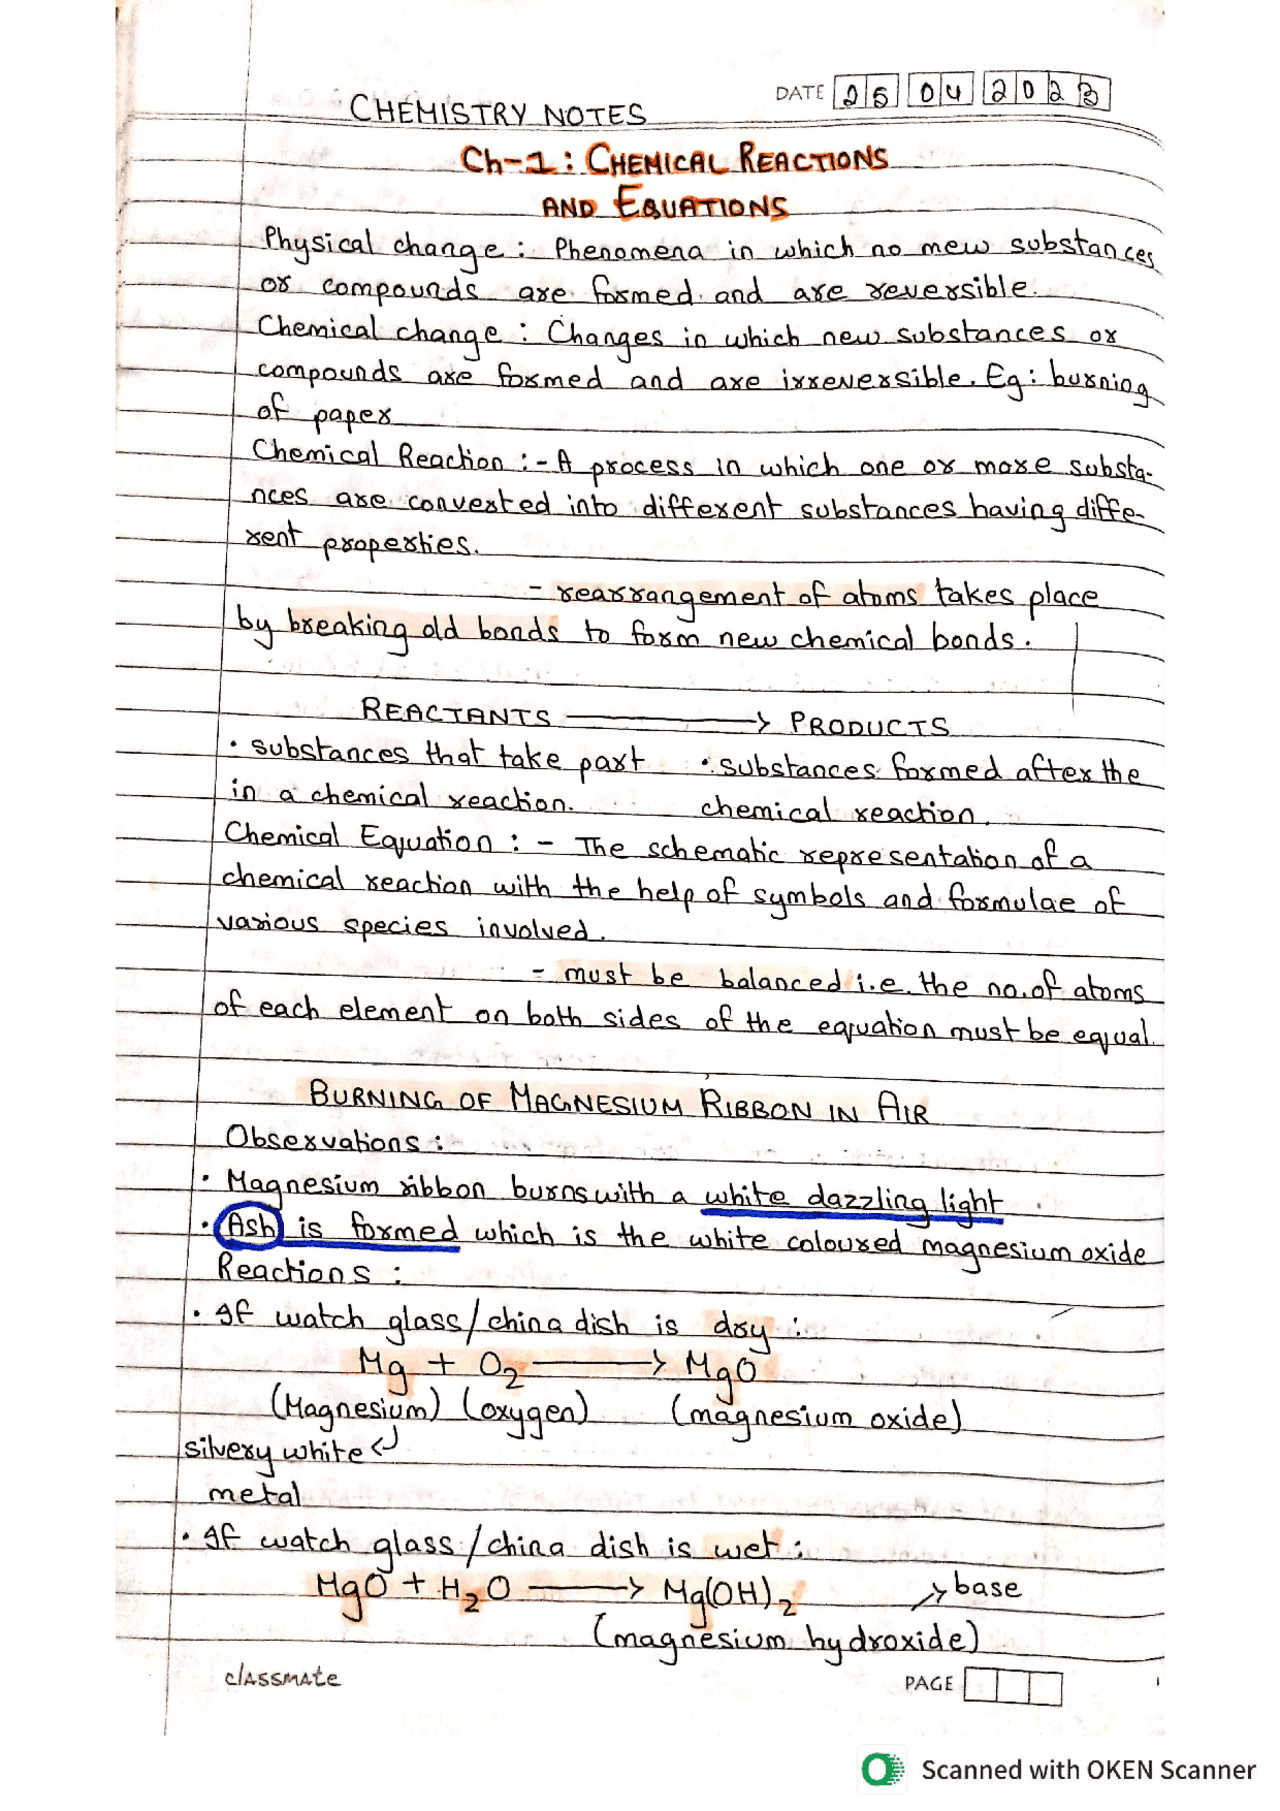 DATE 25 04 2023
CHEMISTRY NOTES
Ch-1: CHEMICAL REACTIONS
AND EQUATIONS
Physical change: Phenomena in which no mew substances
or compounds are formed and are reversible.
Chemical change: Changes in which new substances or
compounds are formed and are irreversible. Eg: burning
of paper
Chemical Reaction :- A process in which one or more substa-
nces are converted into different substances having diffe-
rent properties.
- rearrangement of atoms takes place
by breaking old bonds to form new chemical bonds.
REACTANTS ⟶ PRODUCTS
• substances that take part • substances formed after the
in a chemical reaction. chemical reaction.
Chemical Equation :- The schematic representation of a
chemical reaction with the help of symbols and formulae of
various species involved.
- must be balanced i.e. the no. of atoms
of each element on both sides of the equation must be equal.
BURNING OF MAGNESIUM RIBBON IN AIR
Observations:
• Magnesium ribbon burns with a white dazzling light
• Ash is formed which is the white coloured magnesium oxide
Reactions:
• If watch glass/china dish is dry:
Mg + O₂ ⟶ MgO
(Magnesium) (oxygen) (magnesium oxide)
silvery white ↵
metal
• If watch glass/china dish is wet:
MgO + H₂O ⟶ Mg(OH)₂ ↗ base
(magnesium hydroxide)
classmate PAGE
Scanned with OKEN Scanner